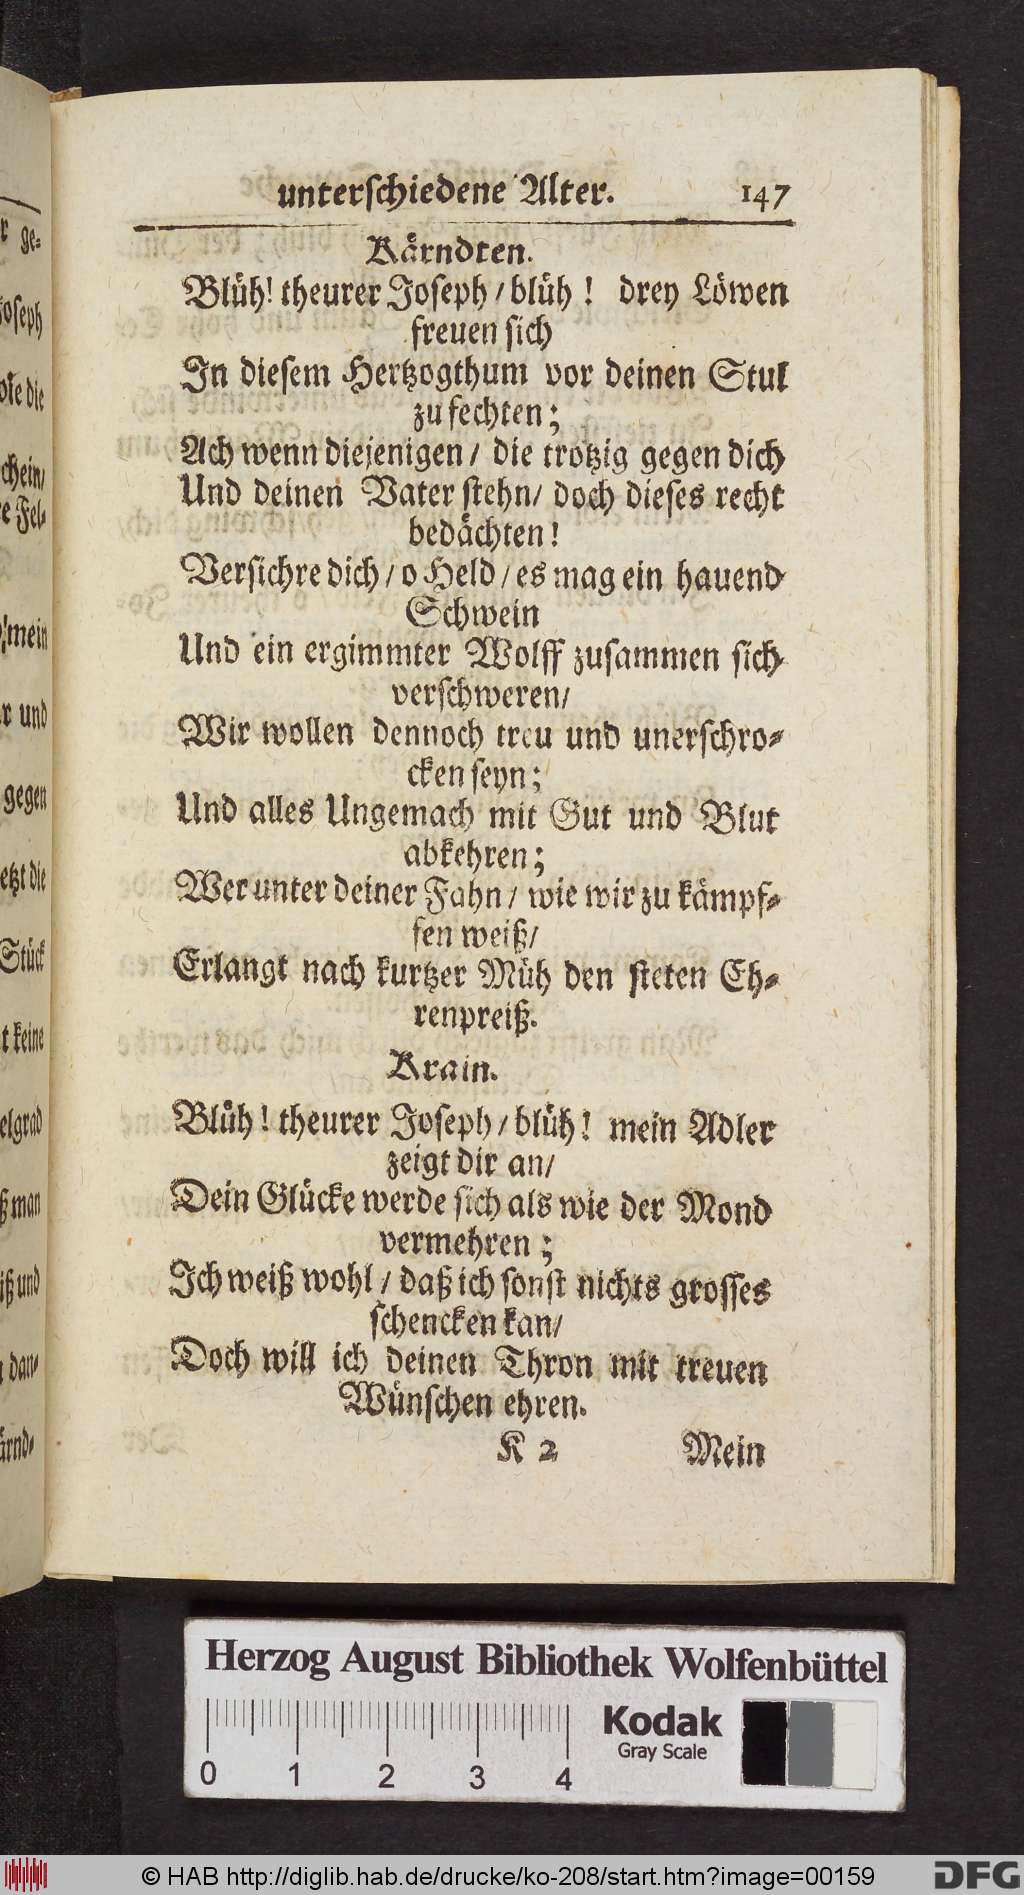 unterschiedene Alter. 147
Kärndten.
Blüh! theurer Joseph / blüh! drey Löwen
freuen sich
In diesem Hertzogthum vor deinen Stul
zu fechten;
Ach wenn diejenigen / die trotzig gegen dich
Und deinen Vater stehn / doch dieses recht
bedächten!
Versichre dich / o Held / es mag ein hauend
Schwein
Und ein ergimmter Wolff zusammen sich
verschweren /
Wir wollen dennoch treu und unerschro-
cken seyn;
Und alles Ungemach mit Gut und Blut
abkehren;
Wer unter deiner Fahn / wie wir zu kämpf-
fen weiß /
Erlangt nach kurtzer Müh den steten Eh-
renpreiß.
Krain.
Blüh! theurer Joseph / blüh! mein Adler
zeigt dir an /
Dein Glücke werde sich als wie der Mond
vermehren;
Ich weiß wohl / daß ich sonst nichts grosses
schencken kan /
Doch will ich deinen Thron mit treuen
Wünschen ehren.
K 2 Mein
r ge-
Joseph
die
schein /
e Fel-
mein
r und
gegen
etzt die
Stück
t keine
elgrad
ß man
iß und
dan-
ärnd-
Herzog August Bibliothek Wolfenbüttel
0 1 2 3 4
Kodak
Gray Scale
© HAB http://diglib.hab.de/drucke/ko-208/start.htm?image=00159
DFG